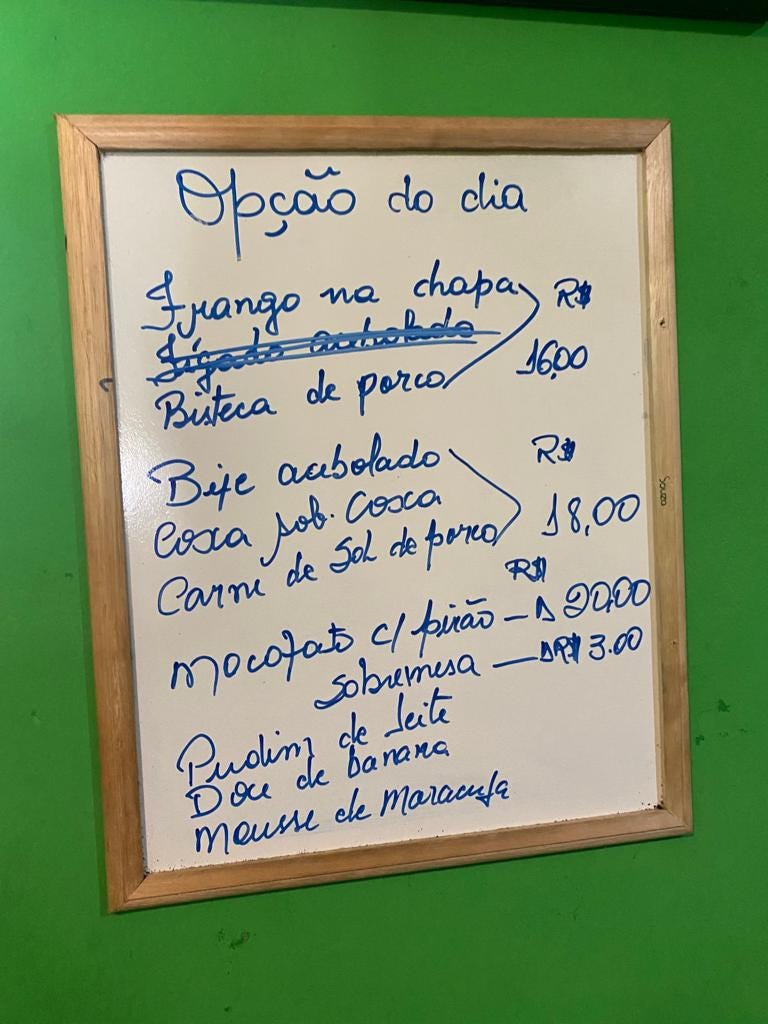 Opção do dia
Frango na chapa R$
Figado acebolado
Bisteca de porco 16,00
Bife acebolado R$
Coxa sob. Coxa
Carne de Sol de porco 18,00
R$
Mocofato c/ pirão — 20,00
Sobremesa — R$ 3.00
Pudim de leite
Doce de banana
Mousse de Maracuja
Souza